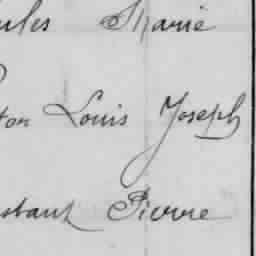 ules Marie
ton Louis Joseph
stant Pierre